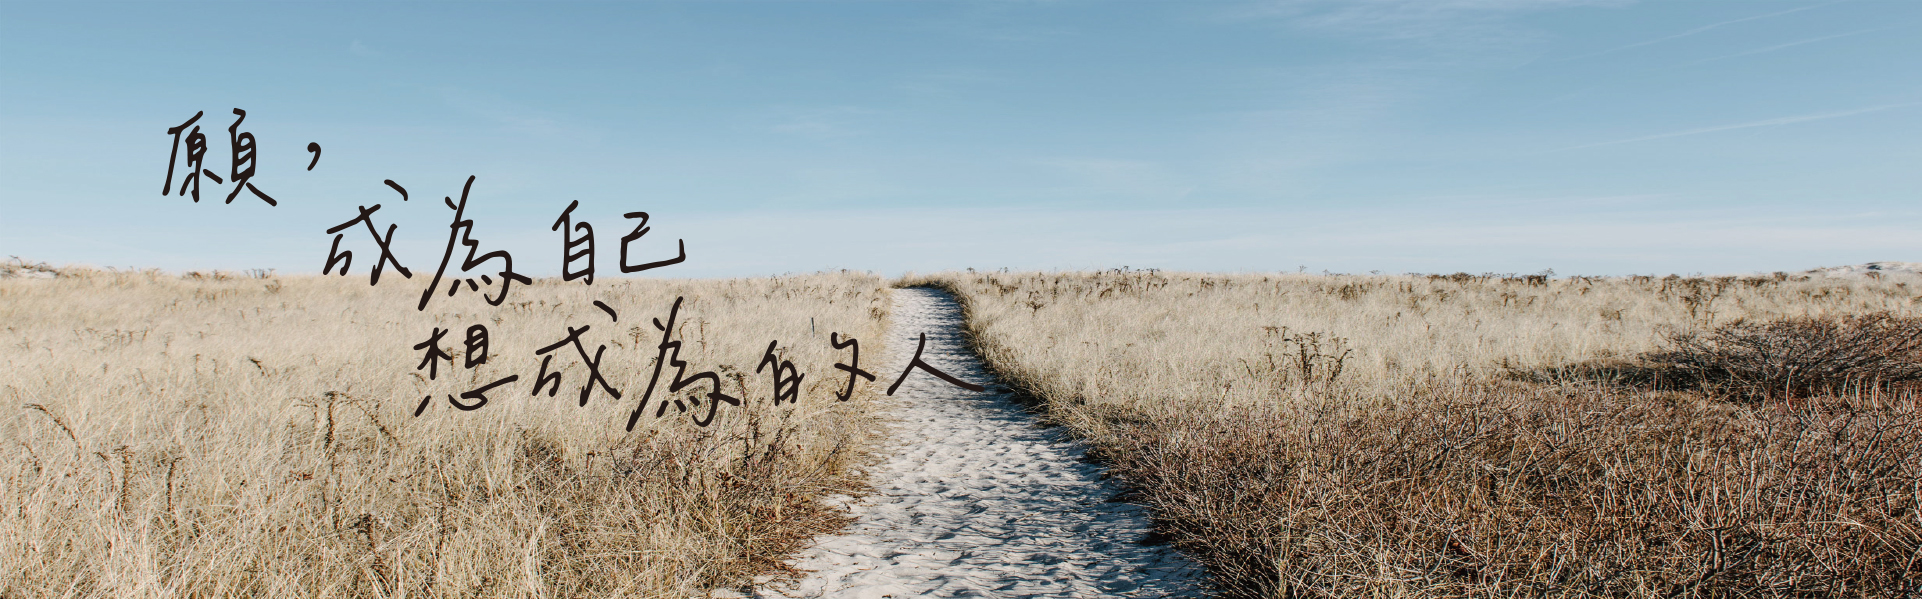 願，
成為自己
想成為的人